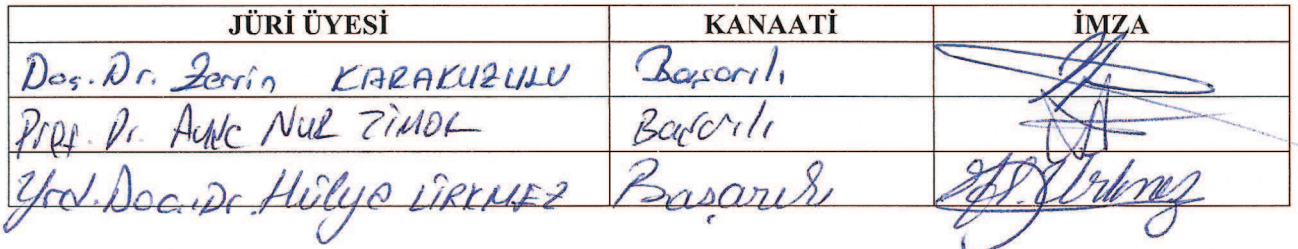 JÜRİ ÜYESİ KANAATİ İMZA
Doç. Dr. Zerrin KARAKUZULU Başarılı
Prof. Dr. Ayşe NUR TİMOR Başarılı
Yrd. Doç. Dr. Hülya ÜRKMEZ Başarılı H. Ürkmez